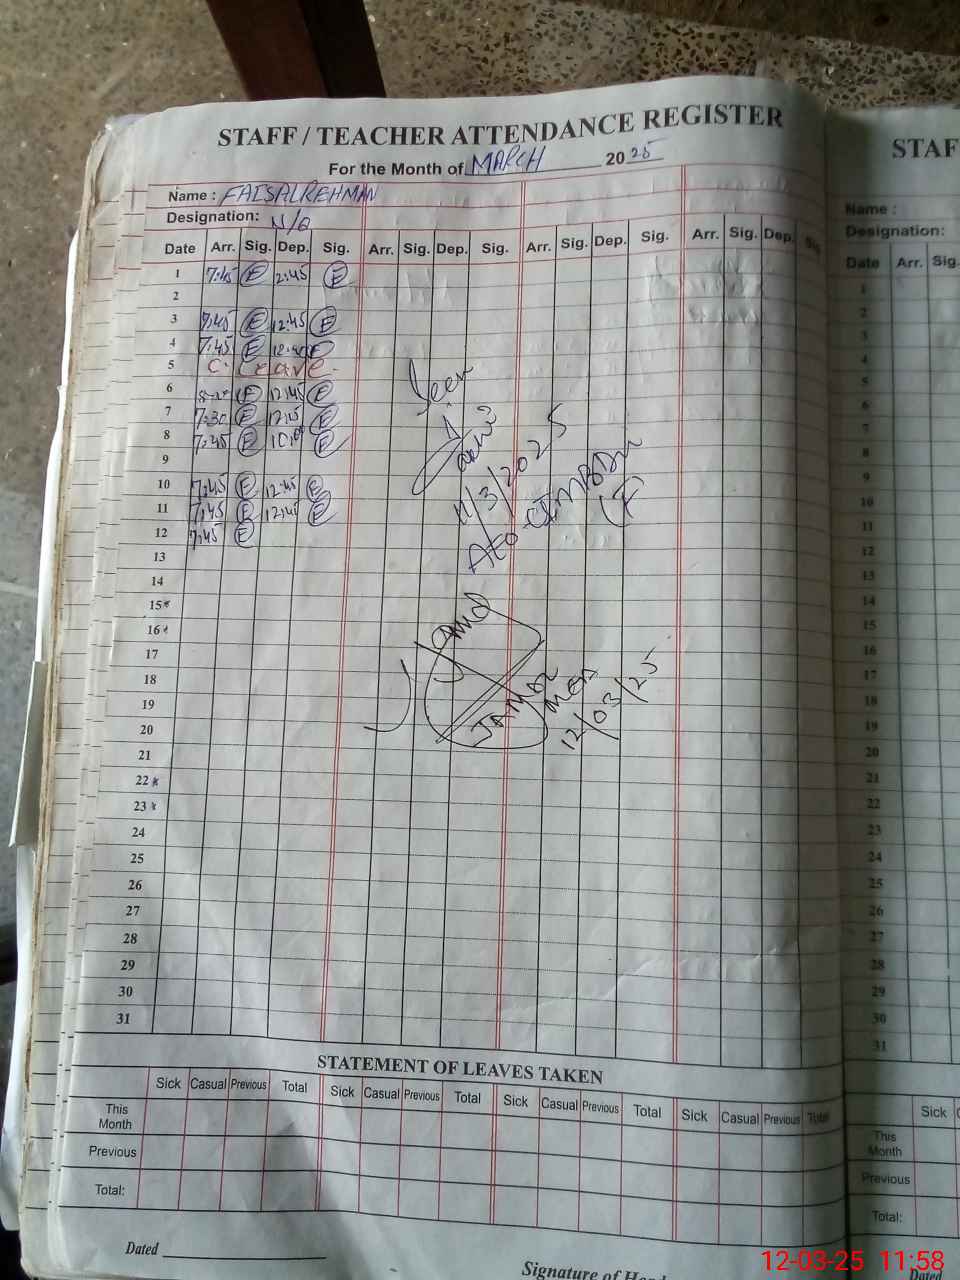 STAFF / TEACHER ATTENDANCE REGISTER
For the Month of MARCH 2025
Name : FAISAL REHMAN
Designation: N/Q
Date Arr. Sig. Dep. Sig. Arr. Sig. Dep. Sig. Arr. Sig. Dep. Sig. Arr. Sig. Dep. Sig.
1 7:45 E 2:45 E
2
3 7:45 E 12:45 E
4 7:45 E
5 C. Leave.
6 E 12:45 E
7 7:30 E 12:15 E
8 7:45 E 10:00 E
9
10 7:45 E 12:45 E
11 7:45 E 12:45 E
12 7:45 E
13
14
15
16
17
18
19
20
21
22
23
24
25
26
27
28
29
30
31
Seen
11/3/2025
(F)
JAMAL
MEA
12/03/25
STATEMENT OF LEAVES TAKEN
Sick Casual Previous Total Sick Casual Previous Total Sick Casual Previous Total Sick Casual Previous Total
This Month
Previous
Total:
Dated
Signature of
STAF
Name :
Designation:
Date Arr. Sig.
1
2
3
4
5
6
7
8
9
10
11
12
13
14
15
16
17
18
19
20
21
22
23
24
25
26
27
28
29
30
31
Sick
This Month
Previous
Total:
Dated
12-03-25 11:58